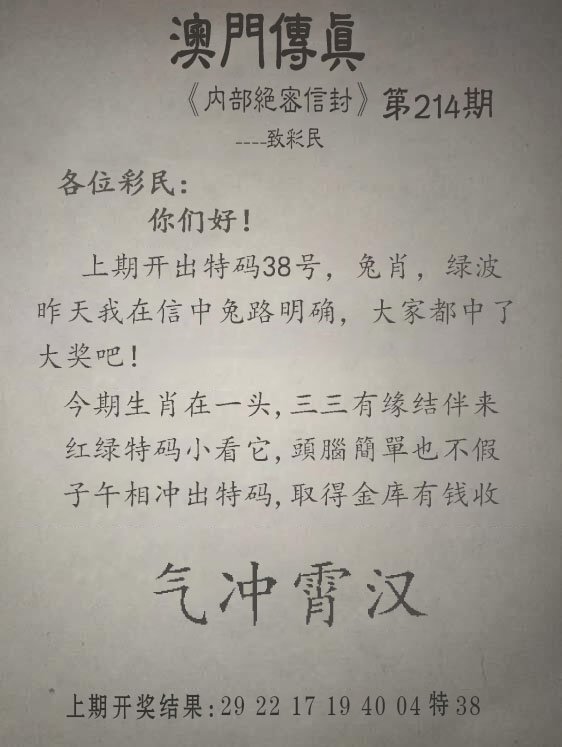 澳門傳眞
《内部絕密信封》第214期
----致彩民
各位彩民：
你们好！
上期开出特码38号，兔肖，绿波
昨天我在信中兔路明确，大家都中了
大奖吧！
今期生肖在一头,三三有缘结伴来
红绿特码小看它,頭腦簡單也不假
子午相冲出特码,取得金库有钱收
气冲霄汉
上期开奖结果:29 22 17 19 40 04特38